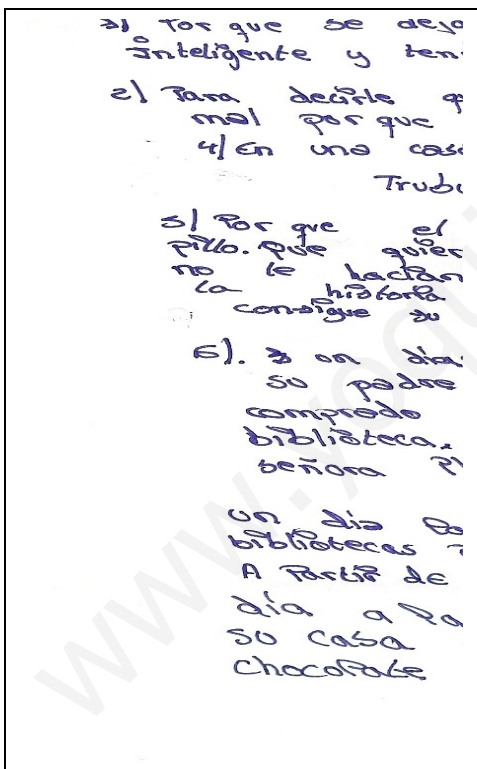 3) Por que se dejo
Inteligente y ten
2) Para decirle q
mal por que
4/ En una cas
Trubi
5) Por que el
pillo. que quier
no le hacian
la historia
consigue su
6). un dia
so padre
comprado
biblioteca.
señora
un dia
bibliotecas
A Partir de
dia a Pa
so casa
chocolate
www.yoqui